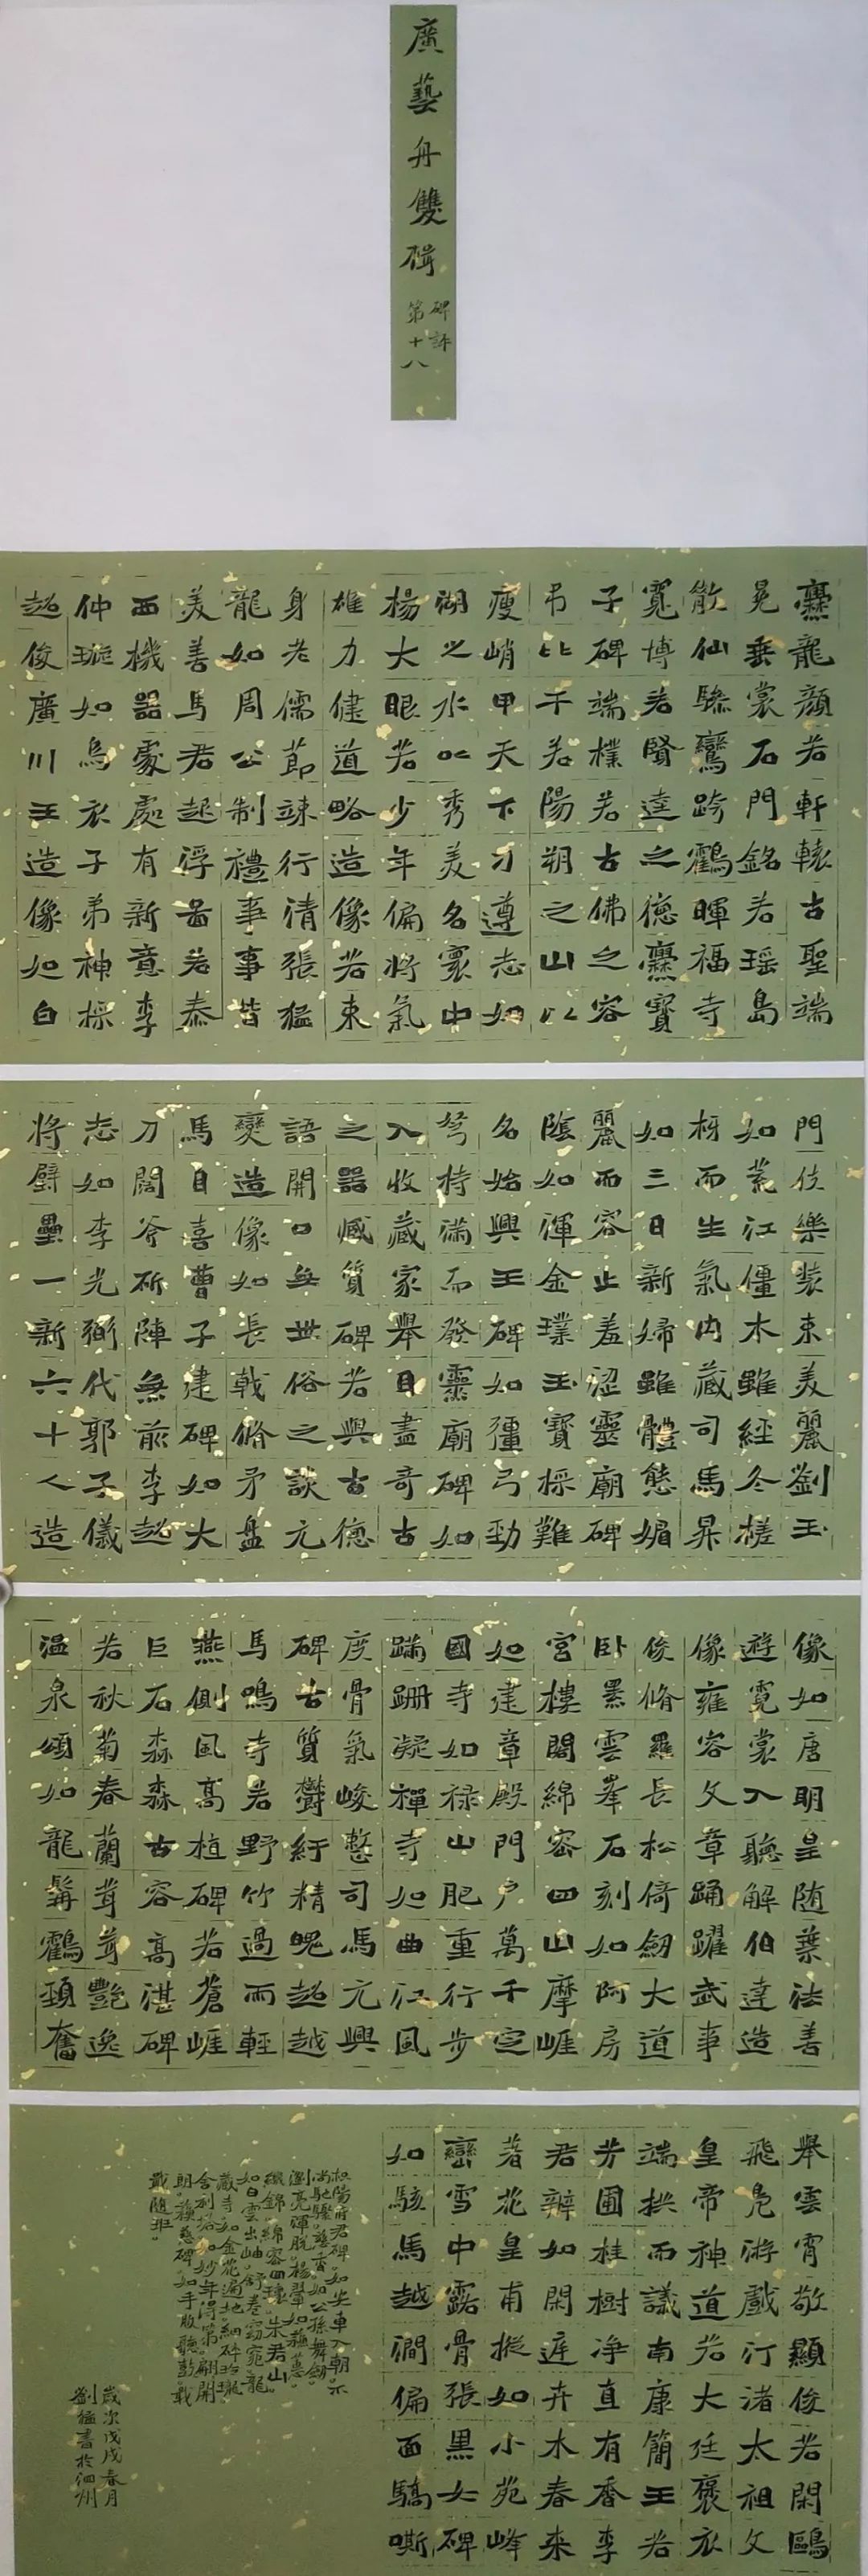 廣藝舟雙楫
碑評
第十八
爨龍顏若軒轅古聖端
冕垂裳石門銘若瑶島
散仙驂鸞跨鶴暉福寺
寬博若賢達之德爨寶
子碑端樸若古佛之容
弔比干若陽朔之山以
瘦峭甲天下刁遵志如
湖之水以秀美名寰中
楊大眼若少年偏將氣
雄力健道略造像若束
身老儒節竦行清張猛
龍如周公制禮事事皆
美善馬君起浮啚若泰
西機器處處有新意李
仲璇如烏衣子弟神採
超俊廣川王造像如白
門伎樂裝束美麗劉玉
如荒江僵木雖經冬槎
枒而生氣內藏司馬昇
如三日新婦雖體態媚
麗而容止羞涩靈廟碑
陰如渾金璞玉寶採難
名始興王碑如彊弓勁
弩持滿而發靈廟碑如
入收藏家舉目盡奇古
之器臧質碑若與古德
語開口無世俗之談元
燮造像如長戟脩矛盘
馬自喜曹子建碑如大
刀闊斧斫陣無前李超
志如李光弼代郭子儀
將劈壘一新六十人造
像如唐明皇随葉法善
遊霓裳入聽解伯達造
像雍容文章踊躍武事
俊脩羅長松倚劒大道
卧羆雲峯石刻如阿房
宮樓閣綿密四山摩崕
如建章殿門戶萬千定
國寺如禄山肥重行步
蹣跚凝禪寺如曲江風
度骨氣峻整司馬元興
碑古質欝紆精魄超越
馬鳴寺若野竹過而輕
燕側風高植碑若蒼崕
巨石森森古容高湛碑
若秋菊春蘭茸茸艷逸
温泉頌如龍髯鶴頸奮
舉雲霄敬顯俊若閑鷗
飛凫游戲汀渚太祖文
皇帝神道若大廷褒衣
端拱而議南康簡王若
芳圃桂樹净直有香李
君辧如閑遊卉木春来
著花皇甫摐如小苑峰
巒雪中露骨張黑女碑
如駭馬越澗偏面驕嘶
枳陽府君碑如安車入朝不
尚馳驟慈香如公孫舞劒
瀏亮渾脱楊翬如蘇蕙
織錦綿密回環朱君山
如白雲出岫舒卷窈窕龍
藏寺如金花遍地細碎玲瓏
舍利塔如妙年得第翩開
朗蘇慈碑如手版聽鼓戢
戢随班
歲次戊戌春月
劉猛書於泗州